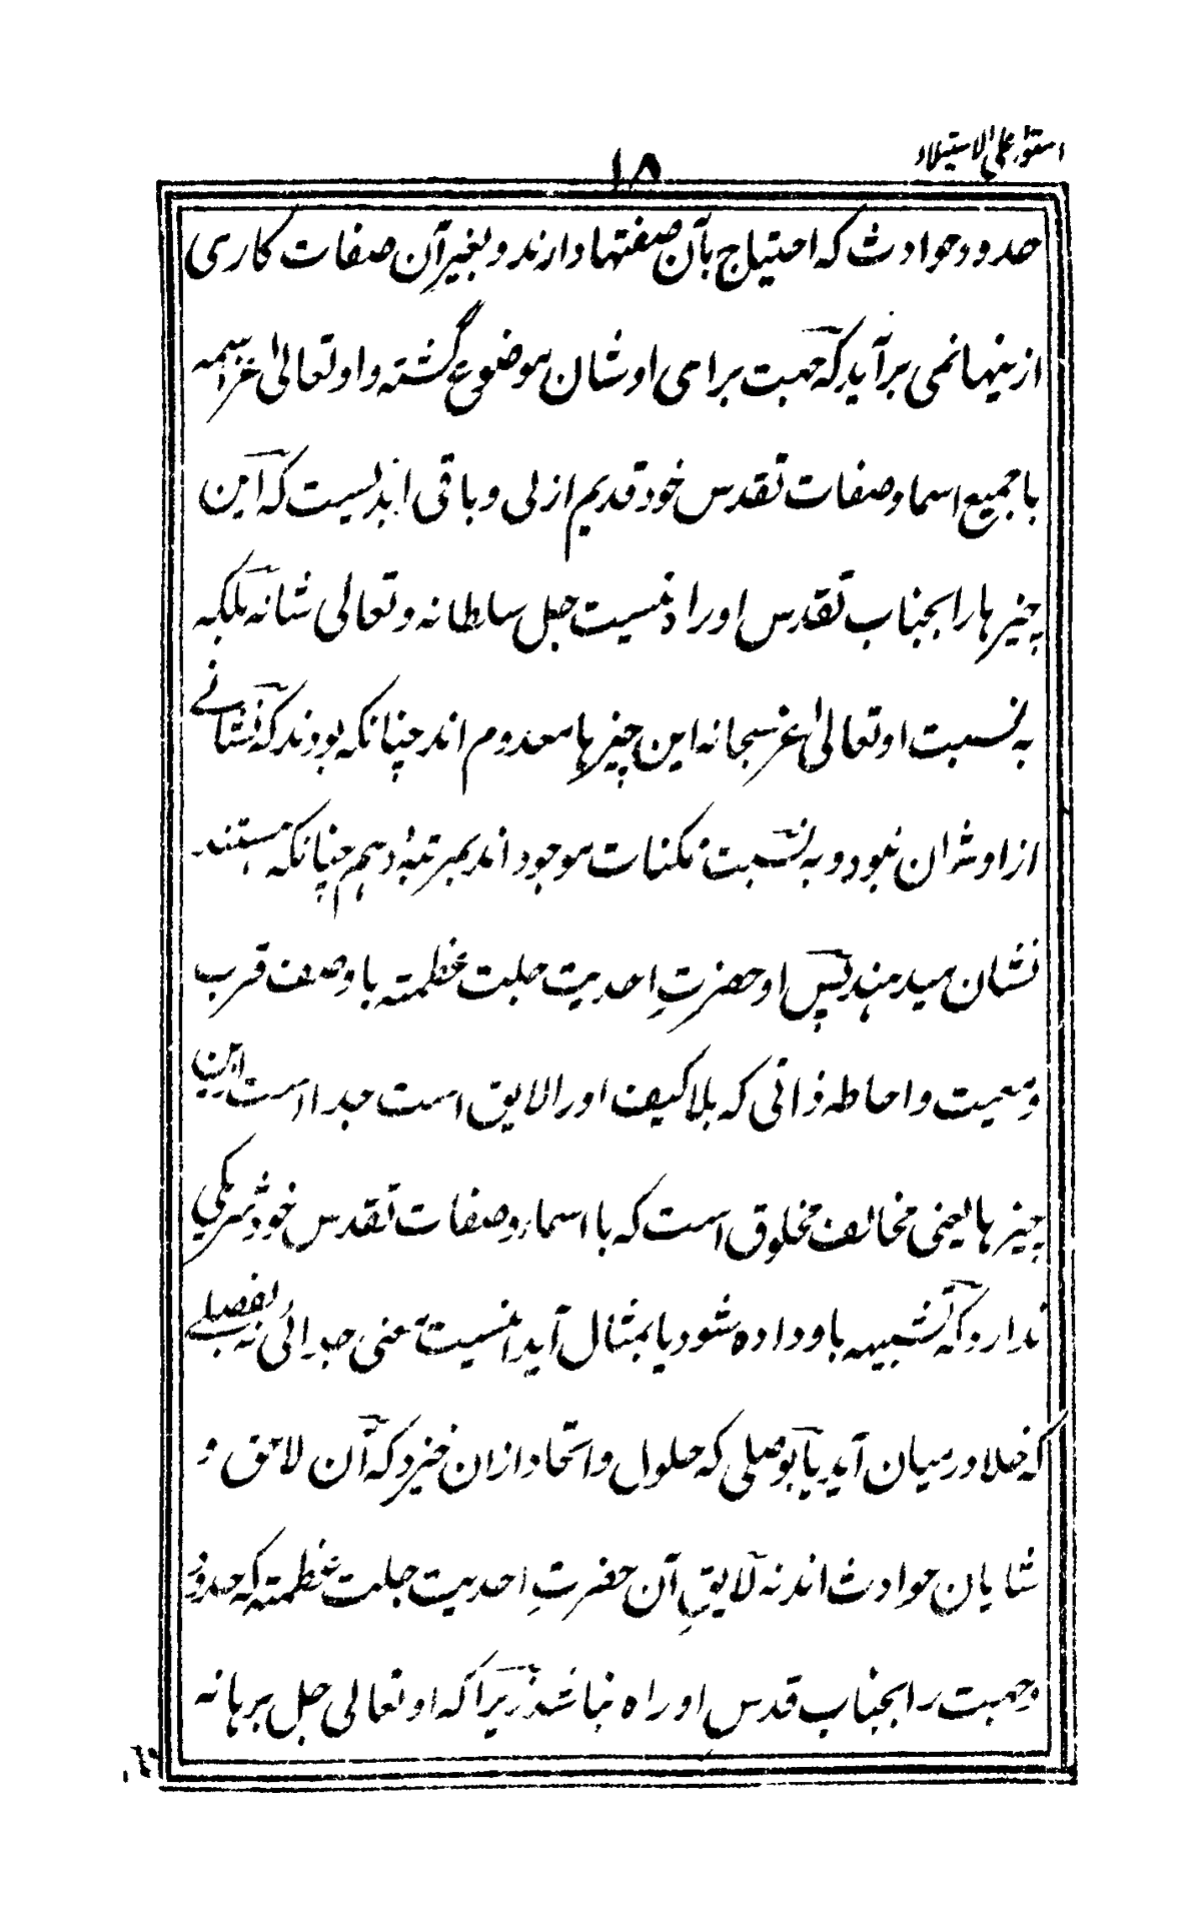 استوا علی الاستیلاء
۱۸
حدود حوادث که احتیاج بآن صفتها دارند و بغیر آن صفات کاری
ازینها نمی برآید که جهت برای اوشان موضوع گشته و او تعالیٰ عز اسمه
با جمیع اسما و صفات تقدس خود قدیم ازلی و باقی ابدیست که این
چیزها را بجناب تقدس او راه نیست جل سلطانه و تعالی شانه بلکه
به نسبت او تعالیٰ عز سبحانه این چیزها معدوم اند چنانکه بودند که نشانے
از اوشان نبود و به نسبت ممکنات موجود اند بمرتبهٔ وهم چنانکه هستند
نشان میدهند پس او حضرتِ احدیت جلت عظمته باوصف قرب
و معیت و احاطه ذاتی که بلا کیف او را لایق است جدا است ازین
چیزها یعنی مخالف مخلوق است که با اسماء و صفات تقدس خود شریکی
ندارد که تشبیه باو داده شود یا بمثال آید اینست معنی جدائی نه بفصلے
که خلا درمیان آید یا بوصلی که حلول و اتحاد ازان خیزد که آن لائق و
شایان حوادث اند نه لایقِ آن حضرتِ احدیت جلت عظمته که حدود
و جهت را بجناب قدس او راه نباشد زیرا که او تعالی جل برهانه